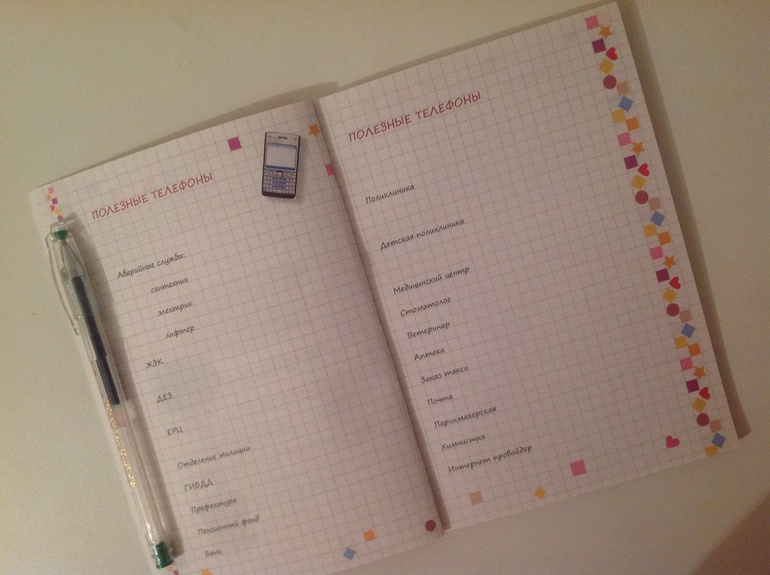 ПОЛЕЗНЫЕ ТЕЛЕФОНЫ
Аварийные службы:
сантехник
электрик
лифтер
ЖЭК
ДЕЗ
ЕРЦ
Отделение милиции
ГИБДД
Префектура
Пенсионный фонд
Банк
ПОЛЕЗНЫЕ ТЕЛЕФОНЫ
Поликлиника
Детская поликлиника
Медицинский центр
Стоматолог
Ветеринар
Аптека
Заказ такси
Почта
Парикмахерская
Химчистка
Интернет провайдер